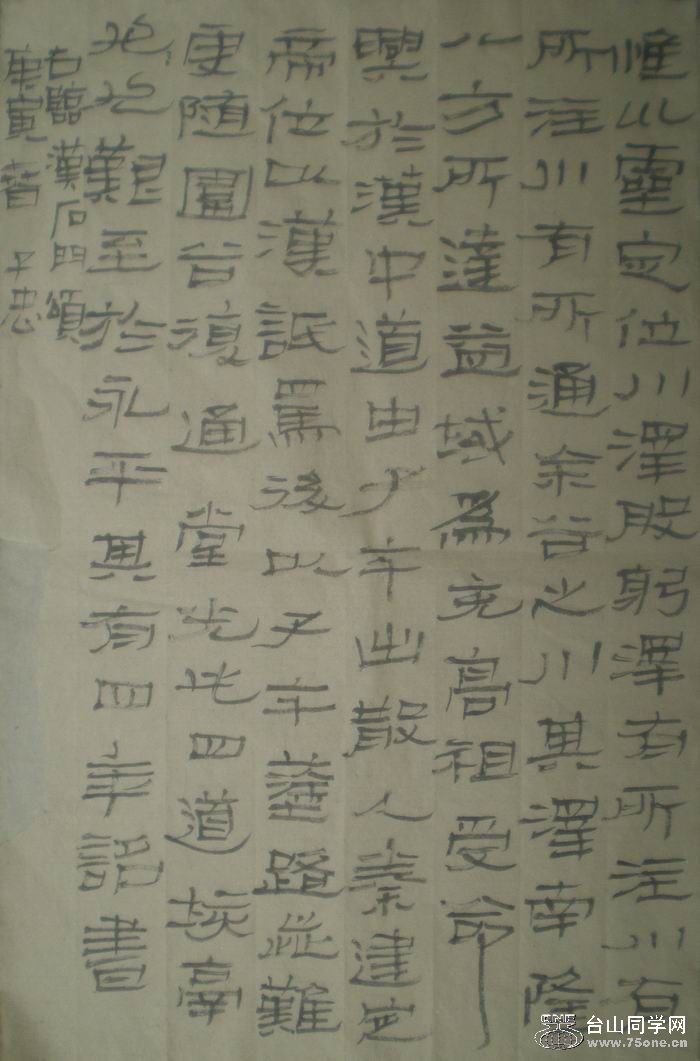 惟巛靈定位川澤股躬澤有所注川有
所注川有所通余谷之川其澤南隆
八方所達益域為充高祖受命
興於漢中道由子午出散入秦建定
帝位以漢詆焉後以子午塗路歰難
更隨圍谷復通堂光此四道垓鬲
尤尤艱至於永平其有四年詔書
右臨漢石門頌
庚寅春 子忠
台山同学网
www.75one.cn